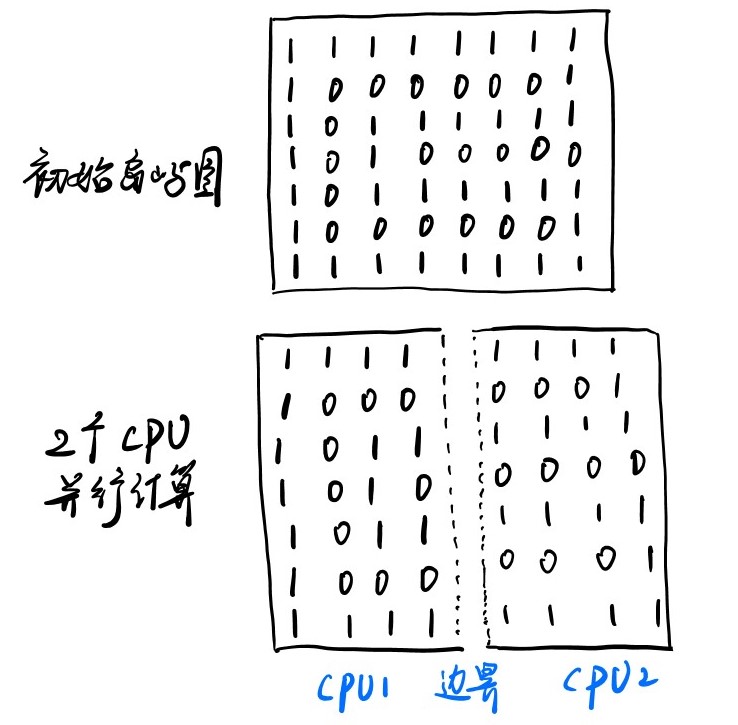 初始岛屿图
1 1 1 1 1 1 1 1
1 0 0 0 0 0 0 1
1 0 1 1 1 1 1 1
1 0 1 0 0 0 0 0
1 0 1 1 1 1 1 1
1 0 0 0 0 0 0 1
1 1 1 1 1 1 1 1
2个CPU
并行计算
1 1 1 1
1 0 0 0
1 0 1 1
1 0 1 0
1 0 1 1
1 0 0 0
1 1 1 1
1 1 1 1
0 0 0 1
1 1 1 1
0 0 0 0
1 1 1 1
0 0 0 1
1 1 1 1
CPU1 边界 CPU2